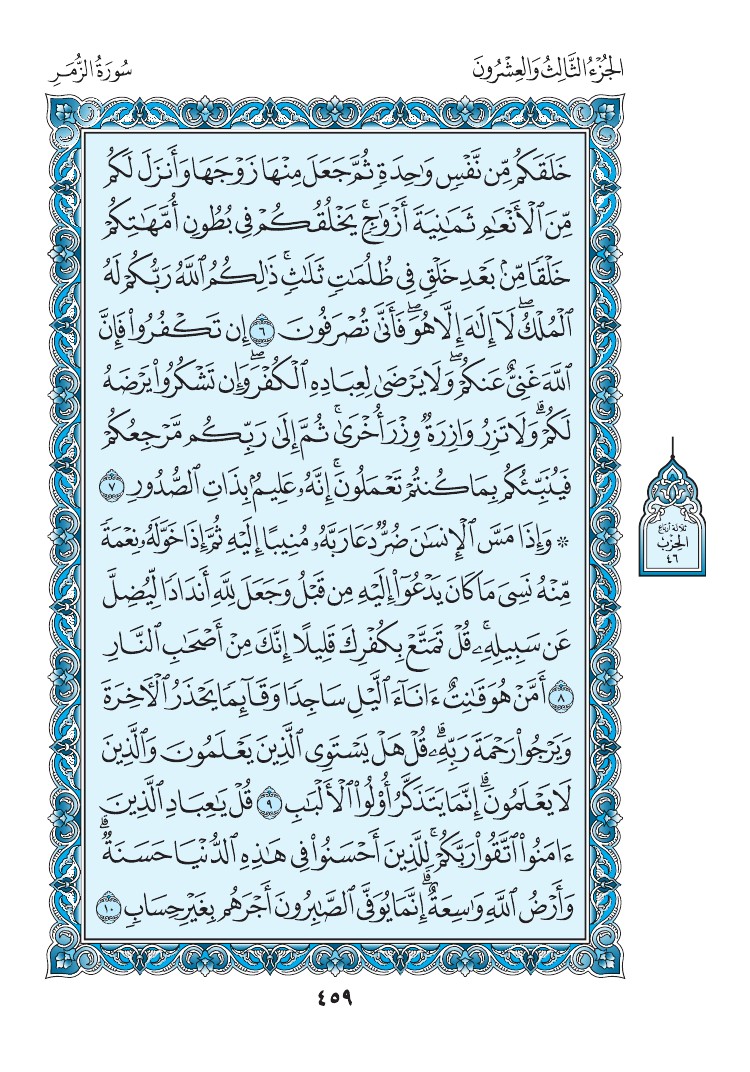 الجُزْءُ الثَّالِثُ وَالعِشْرُونَ
سُورَةُ الزُّمَرِ
خَلَقَكُم مِّن نَّفْسٖ وَٰحِدَةٖ ثُمَّ جَعَلَ مِنْهَا زَوْجَهَا وَأَنزَلَ لَكُم
مِّنَ ٱلْأَنْعَٰمِ ثَمَٰنِيَةَ أَزْوَٰجٖۚ يَخْلُقُكُمْ فِي بُطُونِ أُمَّهَٰتِكُمْ
خَلْقٗا مِّنۢ بَعْدِ خَلْقٖ فِي ظُلُمَٰتٖ ثَلَٰثٖۚ ذَٰلِكُمُ ٱللَّهُ رَبُّكُمْ لَهُ
ٱلْمُلْكُۖ لَآ إِلَٰهَ إِلَّا هُوَۖ فَأَنَّىٰ تُصْرَفُونَ ٦ إِن تَكْفُرُوا۟ فَإِنَّ
ٱللَّهَ غَنِيٌّ عَنكُمْۖ وَلَا يَرْضَىٰ لِعِبَادِهِ ٱلْكُفْرَۖ وَإِن تَشْكُرُوا۟ يَرْضَهُ
لَكُمْۗ وَلَا تَزِرُ وَازِرَةٞ وِزْرَ أُخْرَىٰۚ ثُمَّ إِلَىٰ رَبِّكُم مَّرْجِعُكُمْ
فَيُنَبِّئُكُم بِمَا كُنتُمْ تَعْمَلُونَۚ إِنَّهُۥ عَلِيمُۢ بِذَاتِ ٱلصُّدُورِ ٧
۞ وَإِذَا مَسَّ ٱلْإِنسَٰنَ ضُرّٞ دَعَا رَبَّهُۥ مُنِيبًا إِلَيْهِ ثُمَّ إِذَا خَوَّلَهُۥ نِعْمَةٗ
مِّنْهُ نَسِيَ مَا كَانَ يَدْعُوٓا۟ إِلَيْهِ مِن قَبْلُ وَجَعَلَ لِلَّهِ أَندَادٗا لِّيُضِلَّ
عَن سَبِيلِهِۦۚ قُلْ تَمَتَّعْ بِكُفْرِكَ قَلِيلًا إِنَّكَ مِنْ أَصْحَٰبِ ٱلنَّارِ
٨ أَمَّنْ هُوَ قَٰنِتٌ ءَانَآءَ ٱلَّيْلِ سَاجِدٗا وَقَآئِمٗا يَحْذَرُ ٱلْأٓخِرَةَ
وَيَرْجُوا۟ رَحْمَةَ رَبِّهِۦۗ قُلْ هَلْ يَسْتَوِي ٱلَّذِينَ يَعْلَمُونَ وَٱلَّذِينَ
لَا يَعْلَمُونَۗ إِنَّمَا يَتَذَكَّرُ أُو۟لُوا۟ ٱلْأَلْبَٰبِ ٩ قُلْ يَٰعِبَادِ ٱلَّذِينَ
ءَامَنُوا۟ ٱتَّقُوا۟ رَبَّكُمْۚ لِلَّذِينَ أَحْسَنُوا۟ فِي هَٰذِهِ ٱلدُّنْيَا حَسَنَةٞۗ
وَأَرْضُ ٱللَّهِ وَٰسِعَةٌۗ إِنَّمَا يُوَفَّى ٱلصَّٰبِرُونَ أَجْرَهُم بِغَيْرِ حِسَابٖ ١٠
ثلاثة أرباع
الحزب
٤٦
٤٥٩